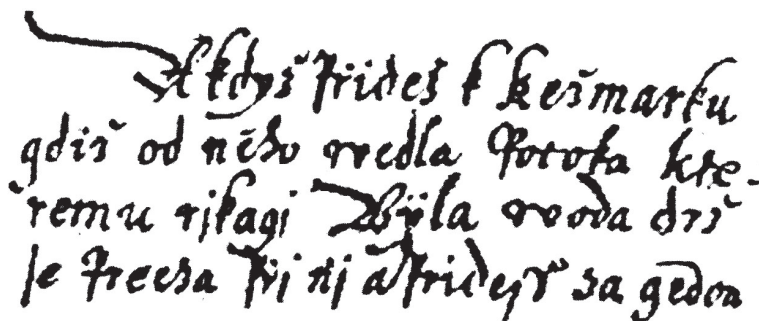 A kdyš přideš k Kešmarku
gdiš od něho wedla Potoka kte-
remu rjkagi Byla woda drš
se přeczа při nj a přidejš za gedon